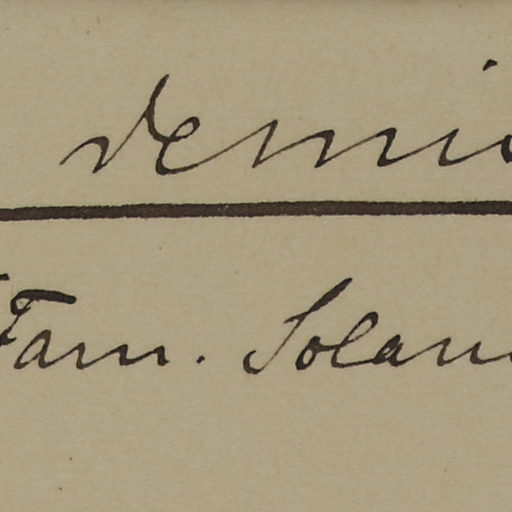 demi
Fam. Solan